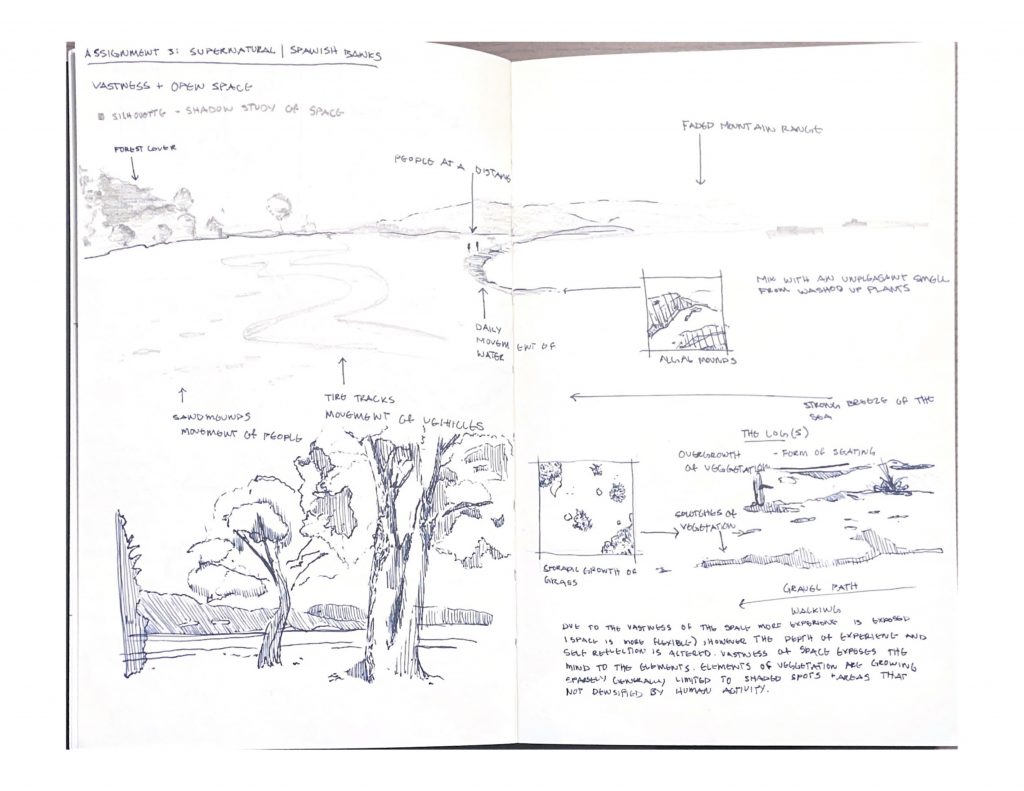 ASSIGNMENT 3: SUPERNATURAL | SPANISH BANKS
VASTNESS + OPEN SPACE
SILHOUTTE - SHADOW STUDY OF SPACE
FOREST COVER
PEOPLE AT A DISTANS
FADED MOUNTAIN RANGE
DAILY
MOVEMENT OF
WATER
MIX WITH AN UNPLEASANT SMELL
FROM WASHED UP PLANTS
ALGAL MOUNDS
SANDMOUNDS
MOVEMENT OF PEOPLE
TIRE TRACKS
MOVEMENT OF VEHICLES
STRONG BREEZE OF THE
SEA
THE LOG(S)
OVERGROWTH
OF VEGGETATION
- FORM OF SEATING
SPLOTCHES OF
VEGETATION
SPORADIC GROWTH OF
GRASS
GRAVEL PATH
WALKING
DUE TO THE VASTNESS OF THE SPACE MORE EXPERIENC IS EXPOSED
(SPACE IS MORE FLEXIBLE), HOWEVER THE DEPTH OF EXPERIENC AND
SELF REFLECTION IS ALTERED. VASTNESS OF SPACE EXPOSES THE
MIND TO THE ELEMENTS. ELEMENTS OF VEGGETATION ARE GROWING
SPARSELY GENERALLY LIMITED TO SHADED SPOTS + AREAS THAT
NOT DENSIFIED BY HUMAN ACTIVITY.